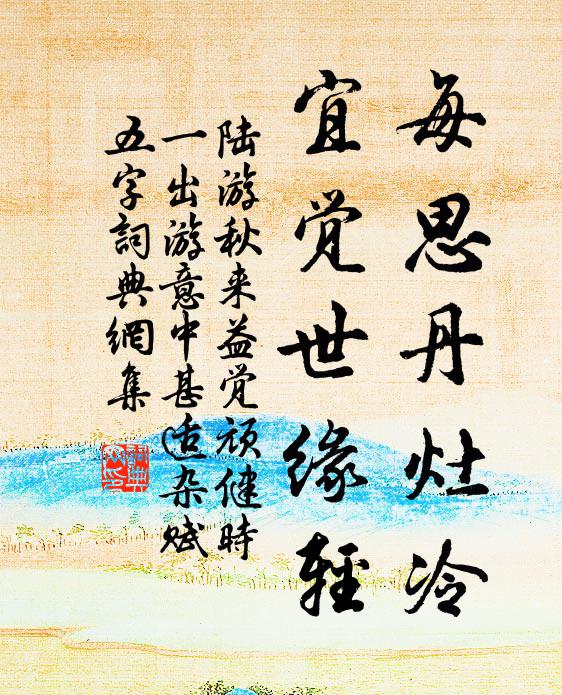 每思丹灶冷
宜觉世缘轻
陆游秋来益觉顽健時
一出游意中甚适杂赋
五字詞典網集